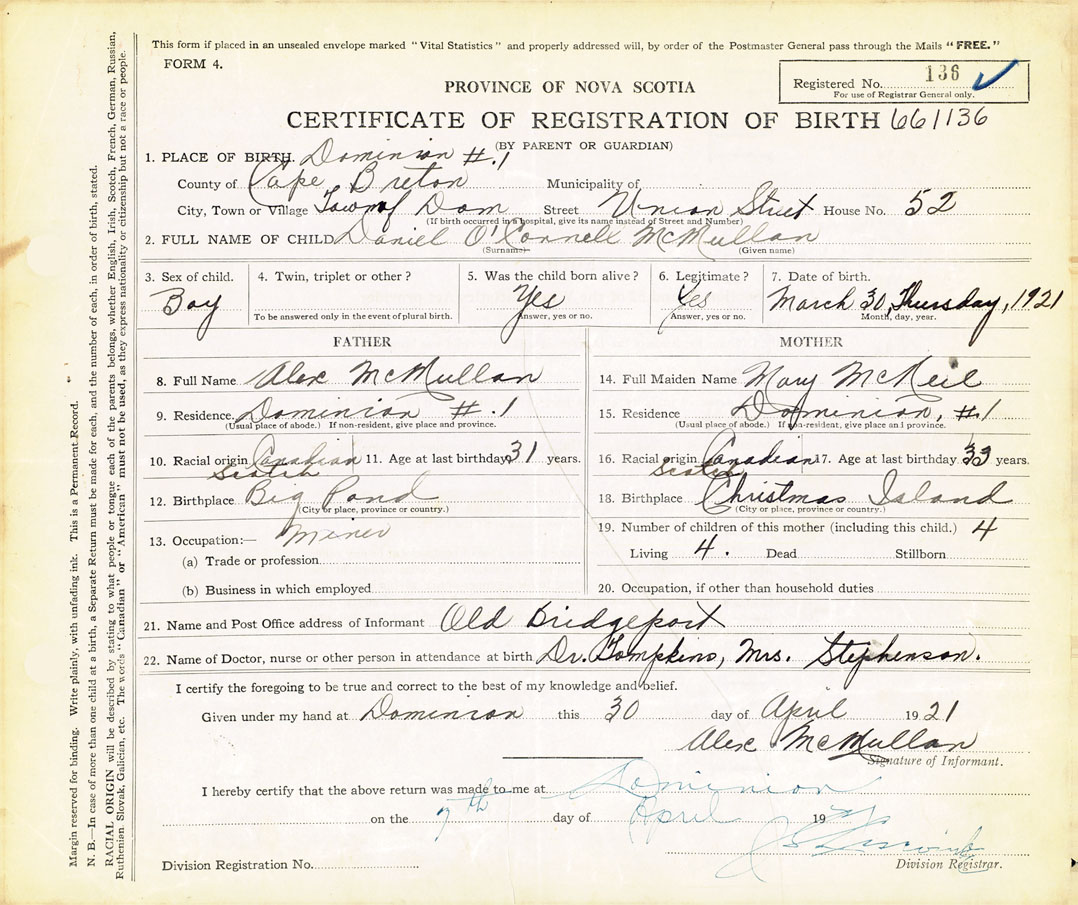 This form if placed in an unsealed envelope marked "Vital Statistics" and properly addressed will, by order of the Postmaster General pass through the Mails "FREE."
FORM 4.
Registered No. 136
For use of Registrar General only.
PROVINCE OF NOVA SCOTIA
CERTIFICATE OF REGISTRATION OF BIRTH 661136
(BY PARENT OR GUARDIAN)
1. PLACE OF BIRTH. Dominion #.1
County of Cape Breton Municipality of
City, Town or Village Town of Dom Street Union Street House No. 52
(If birth occurred in a hospital, give its name instead of Street and Number)
2. FULL NAME OF CHILD Daniel O'Connell McMullan
(Surname) (Given name)
3. Sex of child. 4. Twin, triplet or other? 5. Was the child born alive? 6. Legitimate? 7. Date of birth.
Boy Yes Yes March 30, Thursday, 1921
To be answered only in the event of plural birth. Answer, yes or no. Answer, yes or no. Month, day, year.
FATHER MOTHER
8. Full Name Alex McMullan 14. Full Maiden Name Mary McNeil
9. Residence. Dominion #.1 15. Residence Dominion, #.1
(Usual place of abode.) If non-resident, give place and province. (Usual place of abode.) If non-resident, give place and province.
10. Racial origin Canadian 11. Age at last birthday 31 years. 16. Racial origin Canadian 17. Age at last birthday 33 years.
Scotch Scotch
12. Birthplace Big Pond 18. Birthplace Christmas Island
(City or place, province or country.) (City or place, province or country.)
13. Occupation:— Miner 19. Number of children of this mother (including this child.) 4
(a) Trade or profession Living 4. Dead Stillborn
(b) Business in which employed 20. Occupation, if other than household duties
21. Name and Post Office address of Informant Old Bridgeport
22. Name of Doctor, nurse or other person in attendance at birth Dr. Tompkins, Mrs. Stephenson.
I certify the foregoing to be true and correct to the best of my knowledge and belief.
Given under my hand at Dominion this 30 day of April 1921
Alex McMullan
Signature of Informant.
I hereby certify that the above return was made to me at Dominion
on the 7th day of April 19
Division Registration No. Division Registrar.
Margin reserved for binding. Write plainly, with unfading ink. This is a Permanent Record.
N. B.—In case of more than one child at a birth, a Separate Return must be made for each, and the number of each, in order of birth, stated.
RACIAL ORIGIN will be described by stating to what people or tongue each of the parents belongs, whether English, Irish, Scotch, French, German, Russian,
Ruthenian, Slovak, Galician, etc. The words "Canadian" or "American" must not be used, as they express nationality or citizenship but not a race or people.